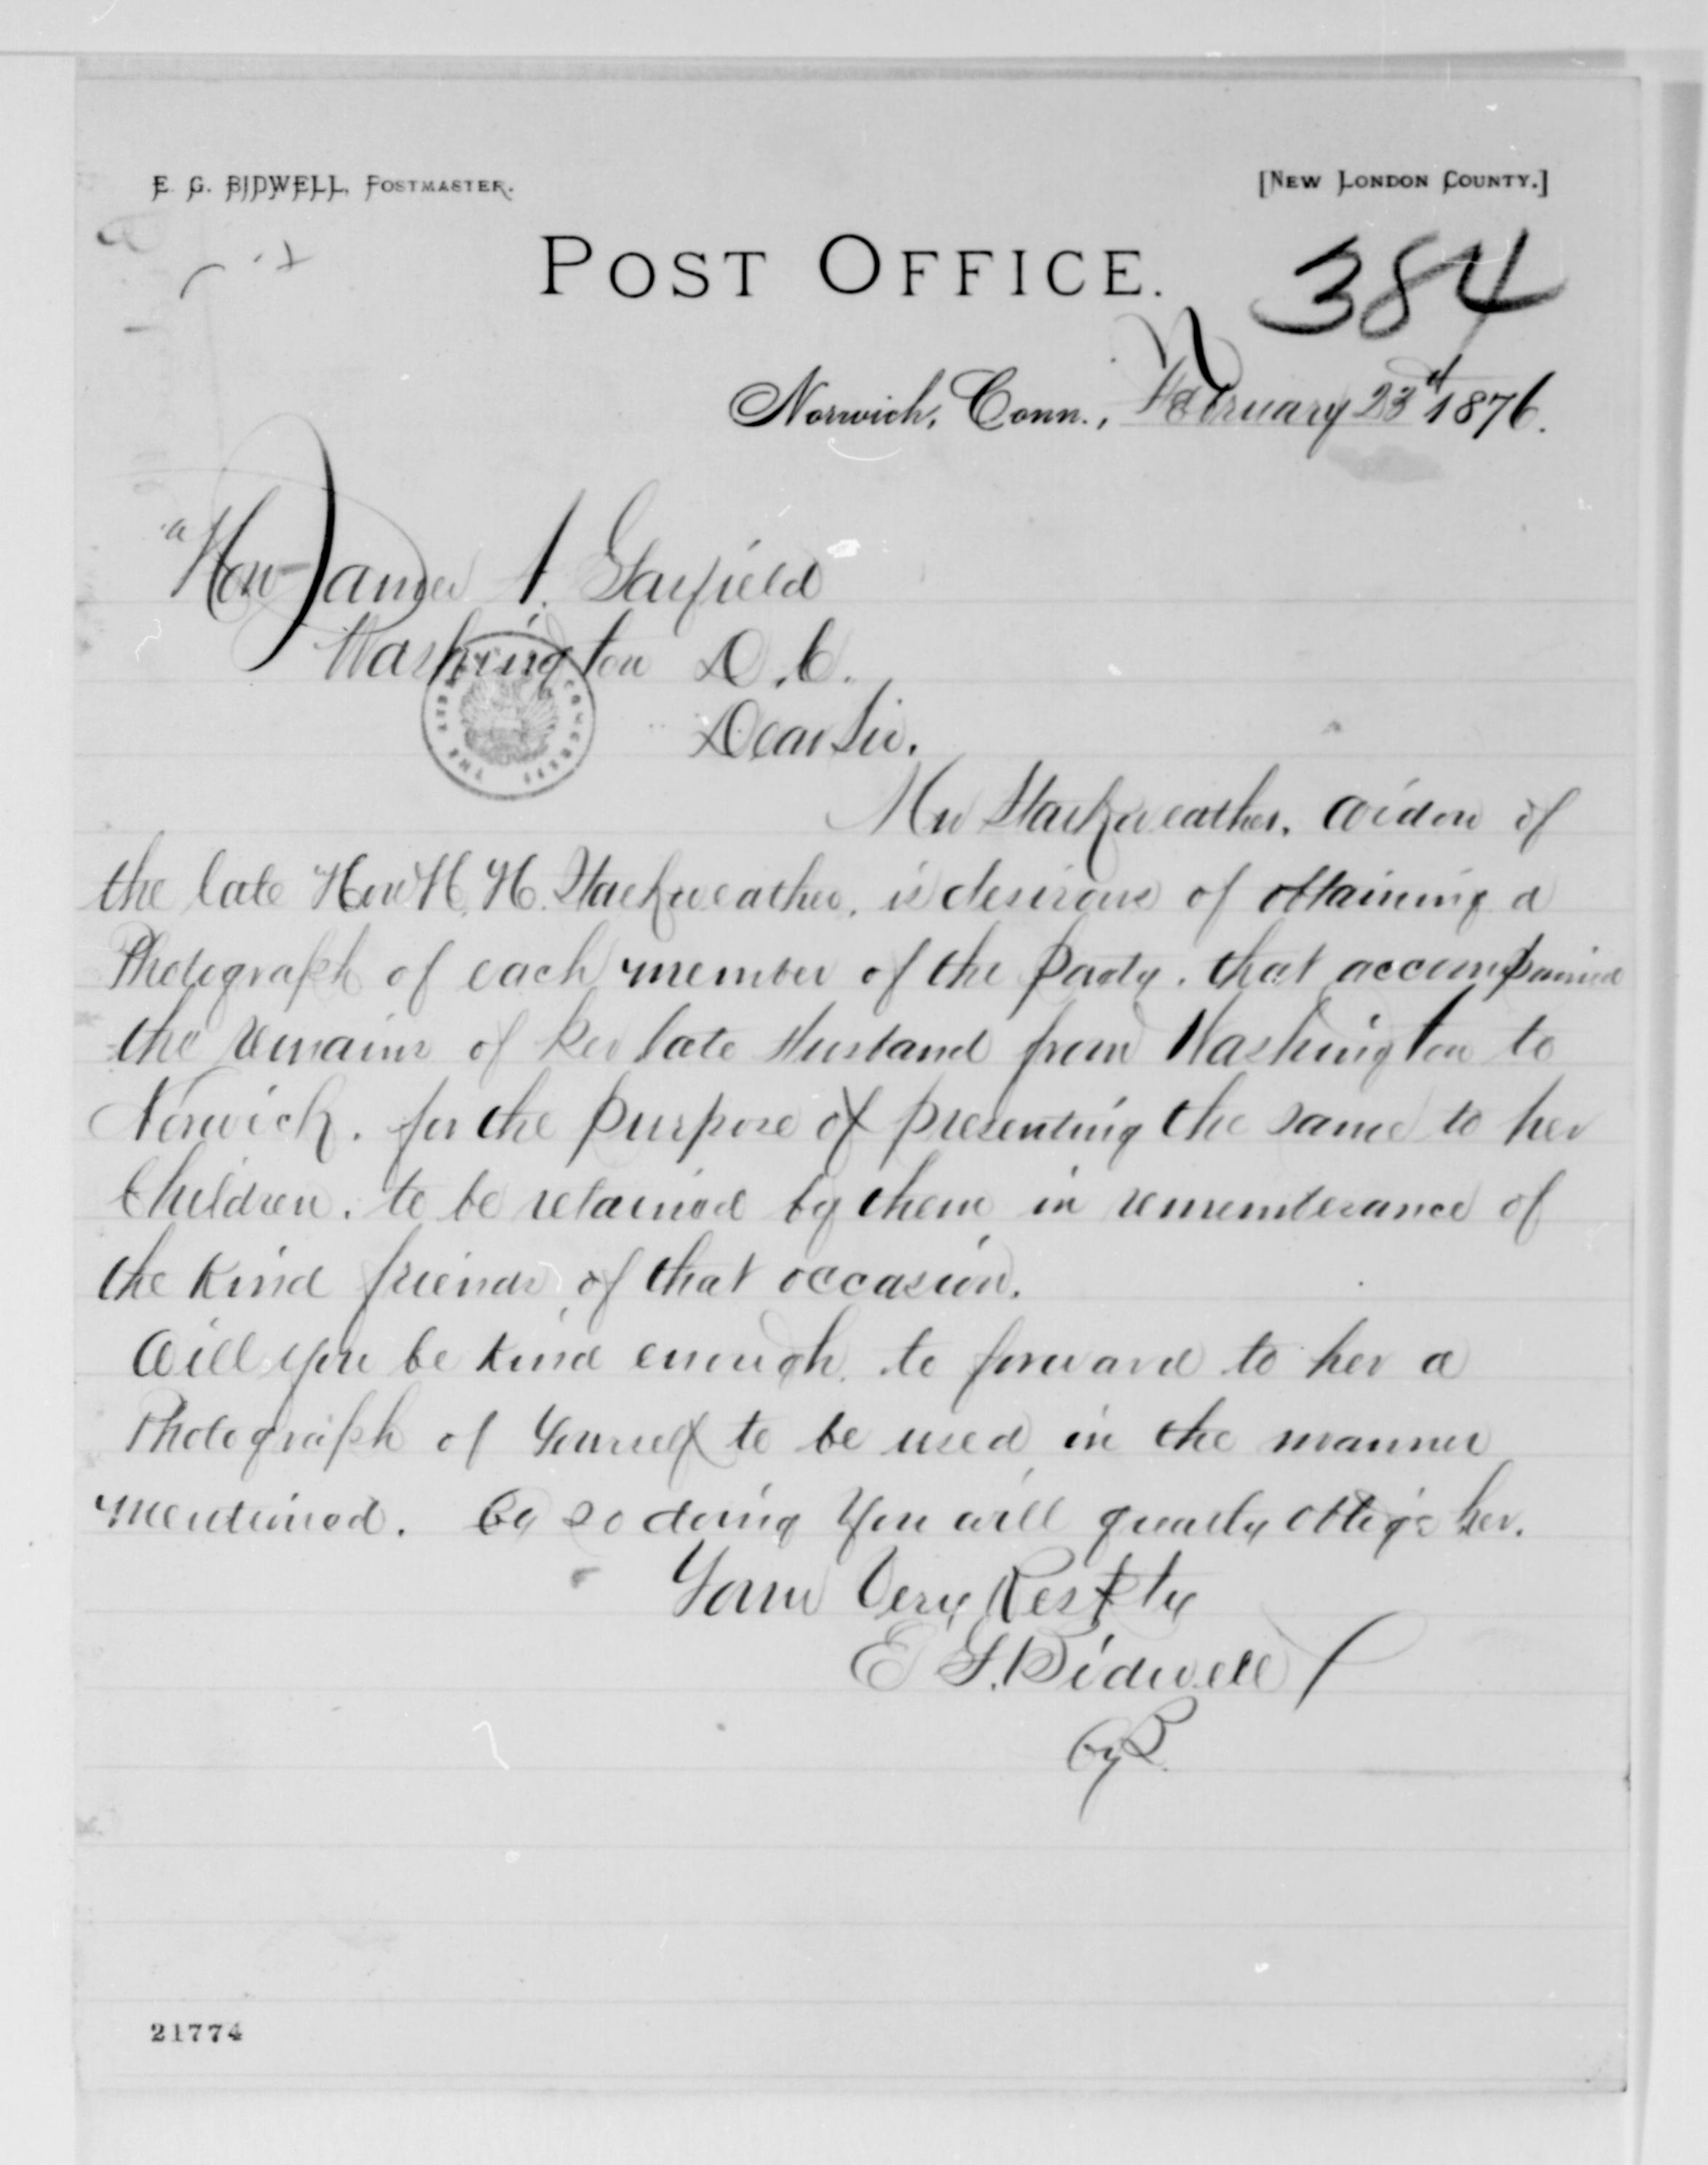 E. G. BIDWELL, POSTMASTER.
[NEW LONDON COUNTY.]
POST OFFICE.
384
Norwich, Conn., February 23d 1876.
Hon James A. Garfield
Washington D.C.
Dear Sir.
Mrs Starkweather, Widow of
the late Hon H. H. Starkweather, is desirous of obtaining a
Photograph of each member of the party, that accompanied
the remains of her late Husband from Washington to
Norwich, for the purpose of presenting the same to her
Children, to be retained by them in rememberance of
the kind friends of that occasion.
Will you be kind enough to forward to her a
Photograph of Yourself to be used in the manner
mentioned. By so doing You will greatly oblige her.
Yours Very Respty
E G. Bidwell
By B.
21774